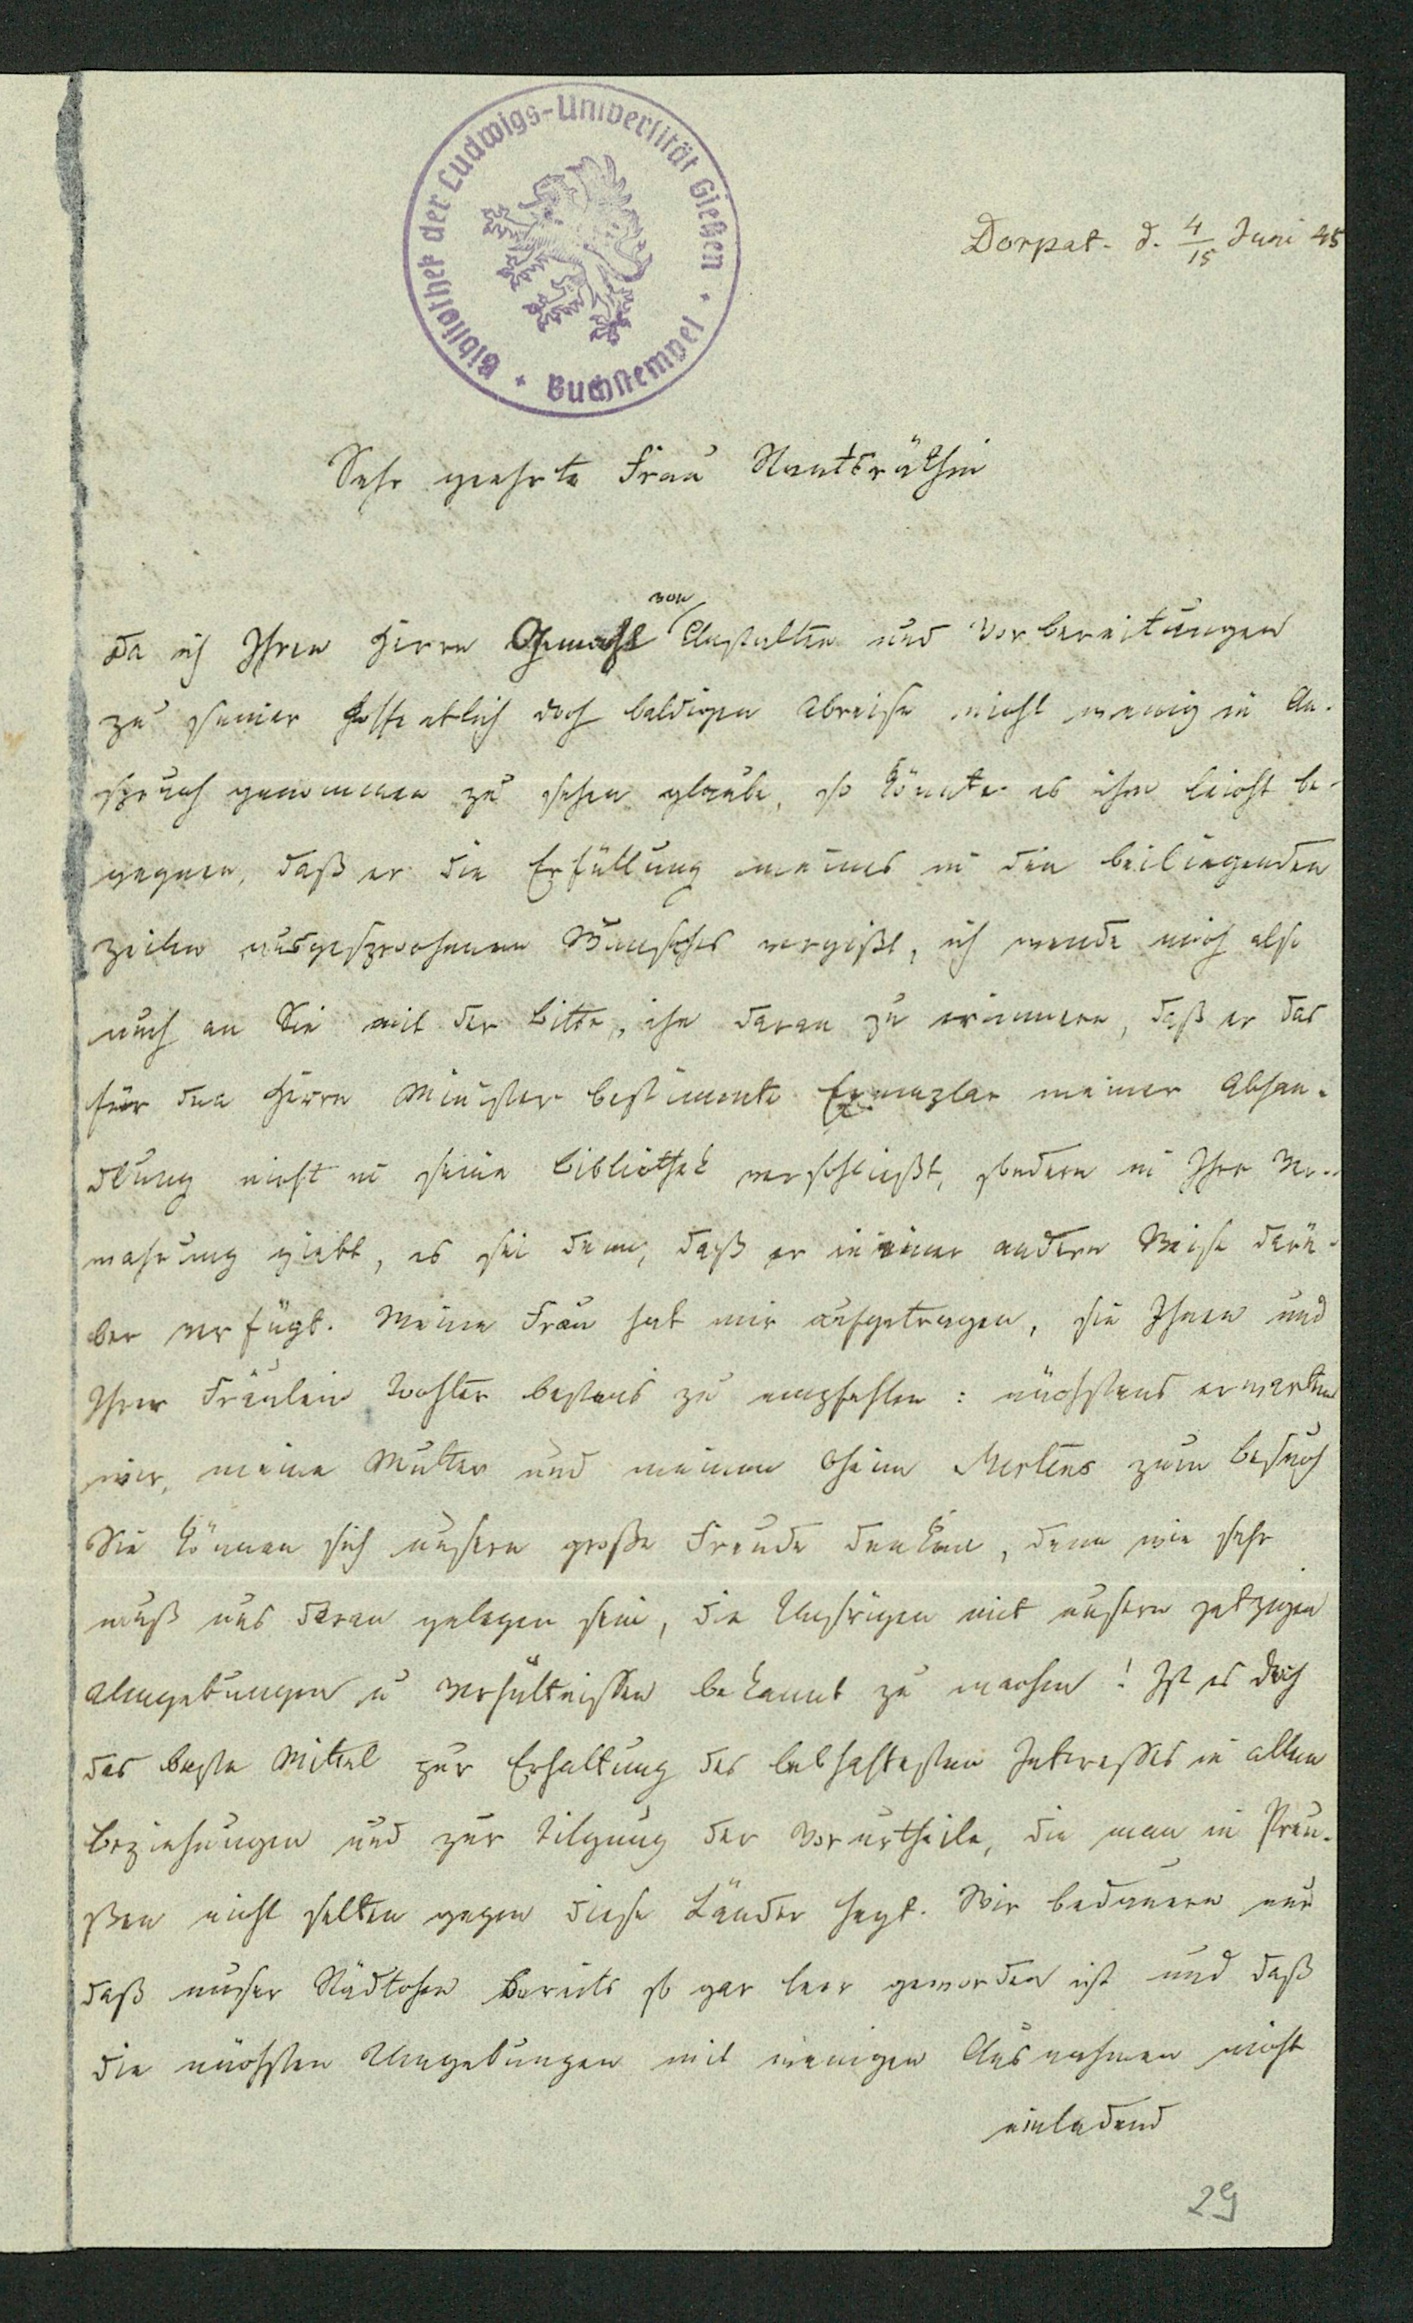 Bibliothek der Ludwigs-Universität Gießen
Buchstempel
Dorpat. d. 4/15 Juni 45
Sehr geehrte Frau Staatsräthin
von
Da ich Ihren Herrn Gemahl Anstalten und Vorbereitungen
zu seiner hoffentlich doch baldigen Abreise nicht wenig in An-
spruch genommen zu sehen glaube, so könnte es ihm leicht be-
gegnen, daß er die Erfüllung meines in den beiliegenden
Zeilen ausgesprochenen Wunsches vergißt, ich wende mich also
auch an Sie mit der Bitte, ihn daran zu erinnern, daß er das
für den Herrn Minister bestimmte Exemplar meiner Abhan-
dlung nicht in seine Bibliothek verschließt, sondern in Ihre Ver-
wahrung giebt, es sei denn, daß er in einer andern Weise darü-
ber verfügt. Meine Frau hat mir aufgetragen, sie Ihnen und
Ihrer Fräulein Tochter bestens zu empfehlen: nächstens erwarten
wir, meine Mutter und meinen Oheim Mertens zum Besuch
Sie können sich unsere große Freude denken, denn wie sehr
muß uns daran gelegen sein, die Unsrigen mit unsern jetzigen
Umgebungen u Verhältnissen bekannt zu machen! Ist es doch
das beste Mittel zur Erhaltung des lebhaftesten Interesses in allen
Beziehungen und zur Tilgung der Vorurtheile, die man in Preu-
ßen nicht selten gegen diese Länder hegt. Wir bedauern nur
daß unser Städtchen bereits so gar leer geworden ist und daß
die nächsten Umgebungen mit wenigen Ausnahmen nicht
einladend
29